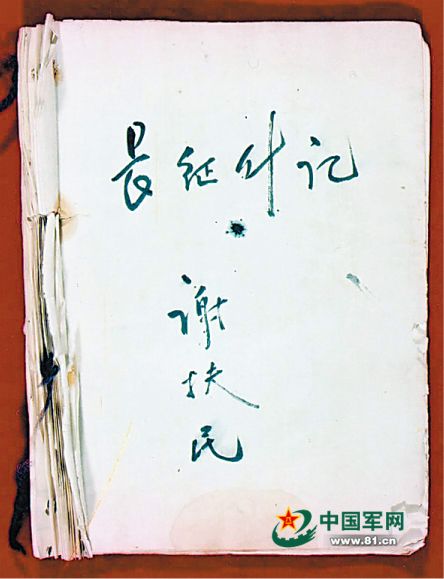 長征什记
谢扶民
中国军网
www.81.cn